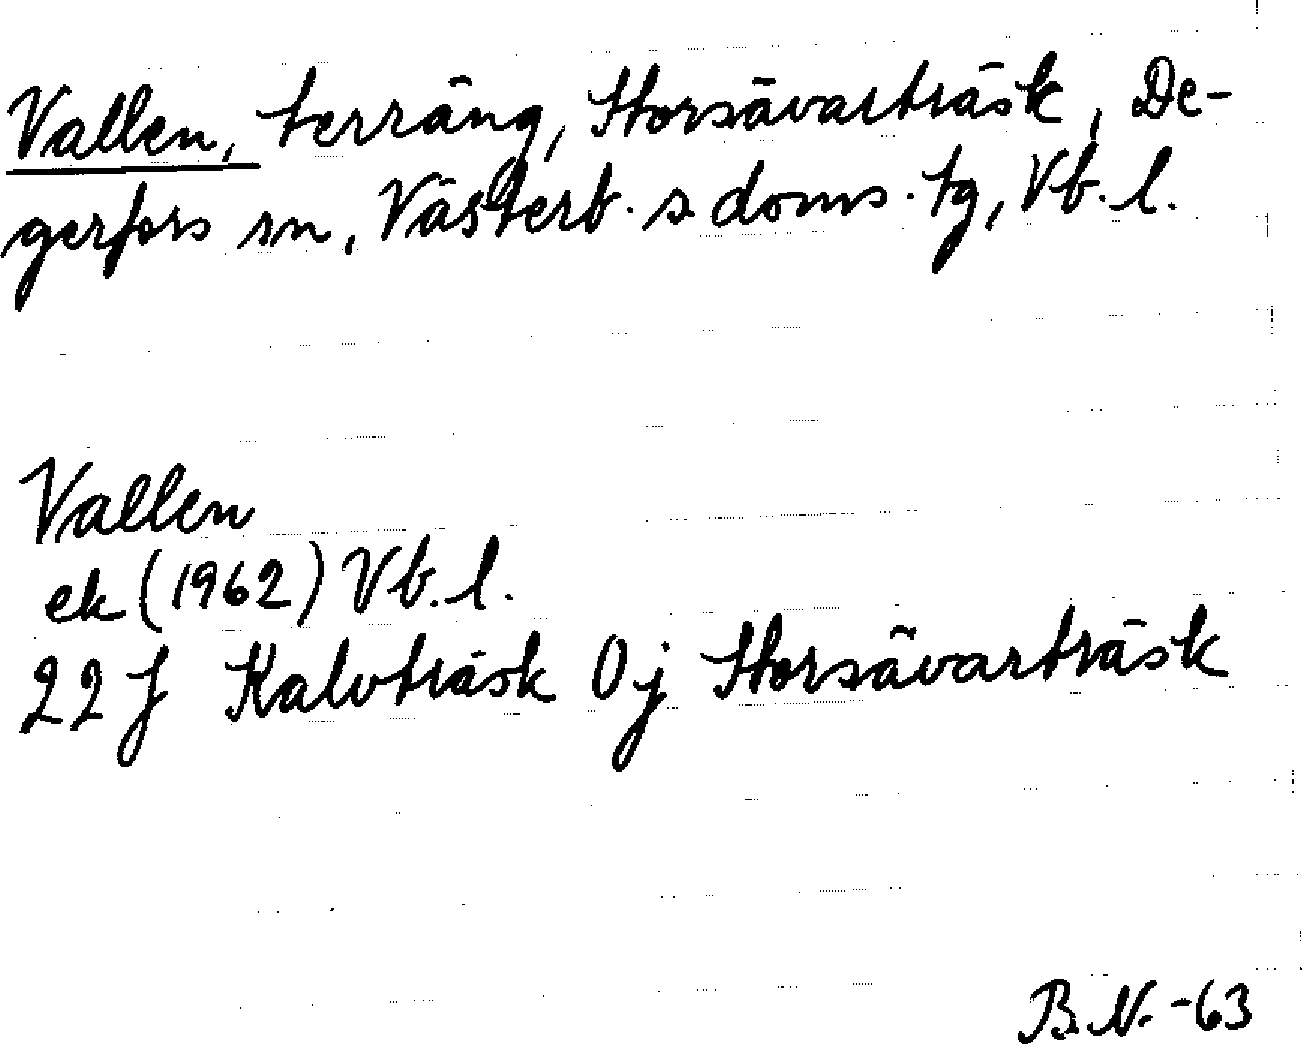 Vallen, terräng, Storsävarträsk, De-
gerfors sn, Västerb. s. doms. tg, Vb. l.
Vallen
ek (1962) Vb. l.
22 J Kalvträsk 0j Storsävarträsk
B.N. -63